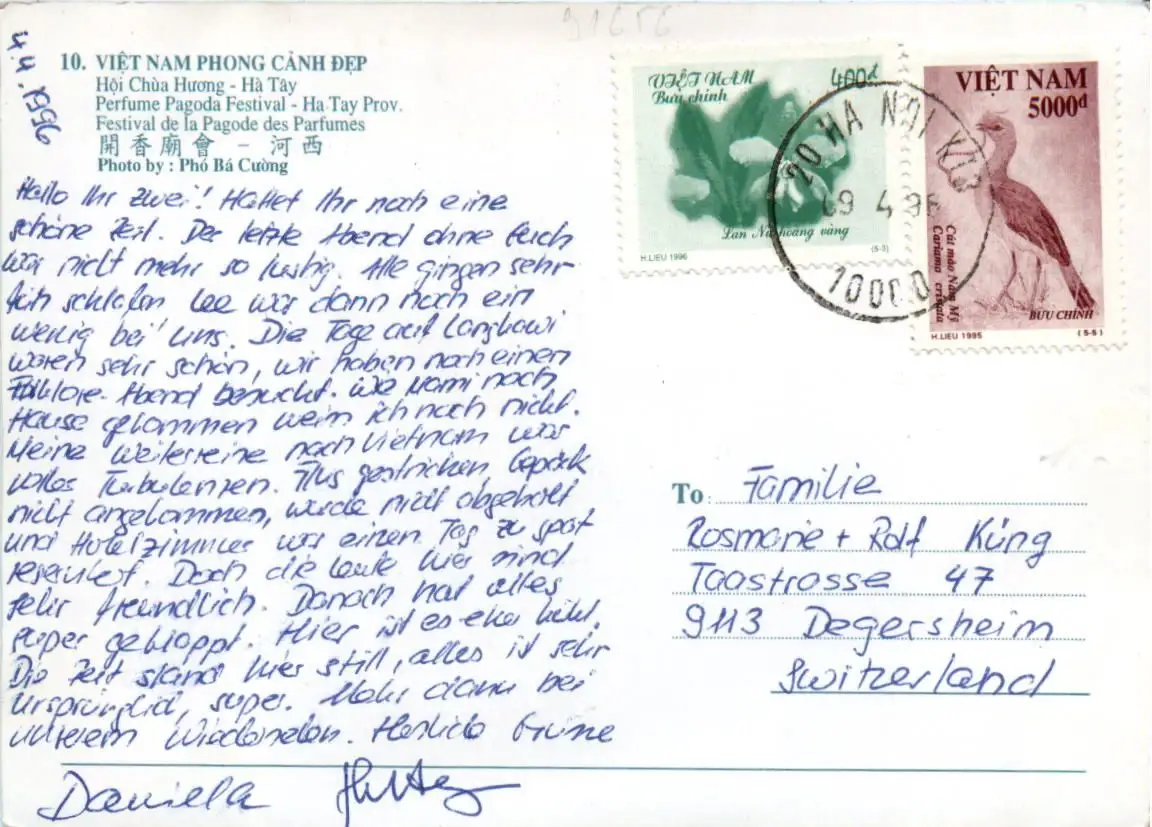 4.4.1996
10. VIỆT NAM PHONG CẢNH ĐẸP
Hội Chùa Hương - Hà Tây
Perfume Pagoda Festival - Ha Tay Prov.
Festival de la Pagode des Parfumes
開香廟會 – 河西
Photo by : Phó Bá Cường
Hallo Ihr zwei! Hattet Ihr noch eine
schöne Zeit. Der letzte Abend ohne Euch
war nicht mehr so lustig. Alle gingen sehr
früh schlafen. Lee war dann noch ein
wenig bei uns. Die Tage auf Langkawi
waren sehr schön, wir haben noch einen
Folklore-Abend besucht. Wie Mami nach
Hause gekommen weiss ich noch nicht.
Meine Weiterreise nach Vietnam war
voller Turbulenzen. Flug gestrichen, Gepäck
nicht angekommen, wurde nicht abgeholt
und Hotelzimmer war einen Tag zu spät
reserviert. Doch die Leute hier sind
sehr freundlich. Danach hat alles
super geklappt. Hier ist es eher kühl.
Die Zeit stand hier still, alles ist sehr
ursprünglich, super. Mehr dann bei
unserem Wiedersehen. Herzliche Grüsse
Daniella
VIỆT NAM
Bưu chính
400đ
Lan Nữ hoàng vàng
H.LIEU 1996
(5-3)
VIỆT NAM
5000đ
Cút mào Nam Mỹ
Cariama cristata
BƯU CHÍNH
H.LIEU 1995
(5-5)
20 HA NOI KT3
09 4 96
10000
To : Familie
Rosmarie + Rolf Küng
Taastrasse 47
9113 Degersheim
Switzerland